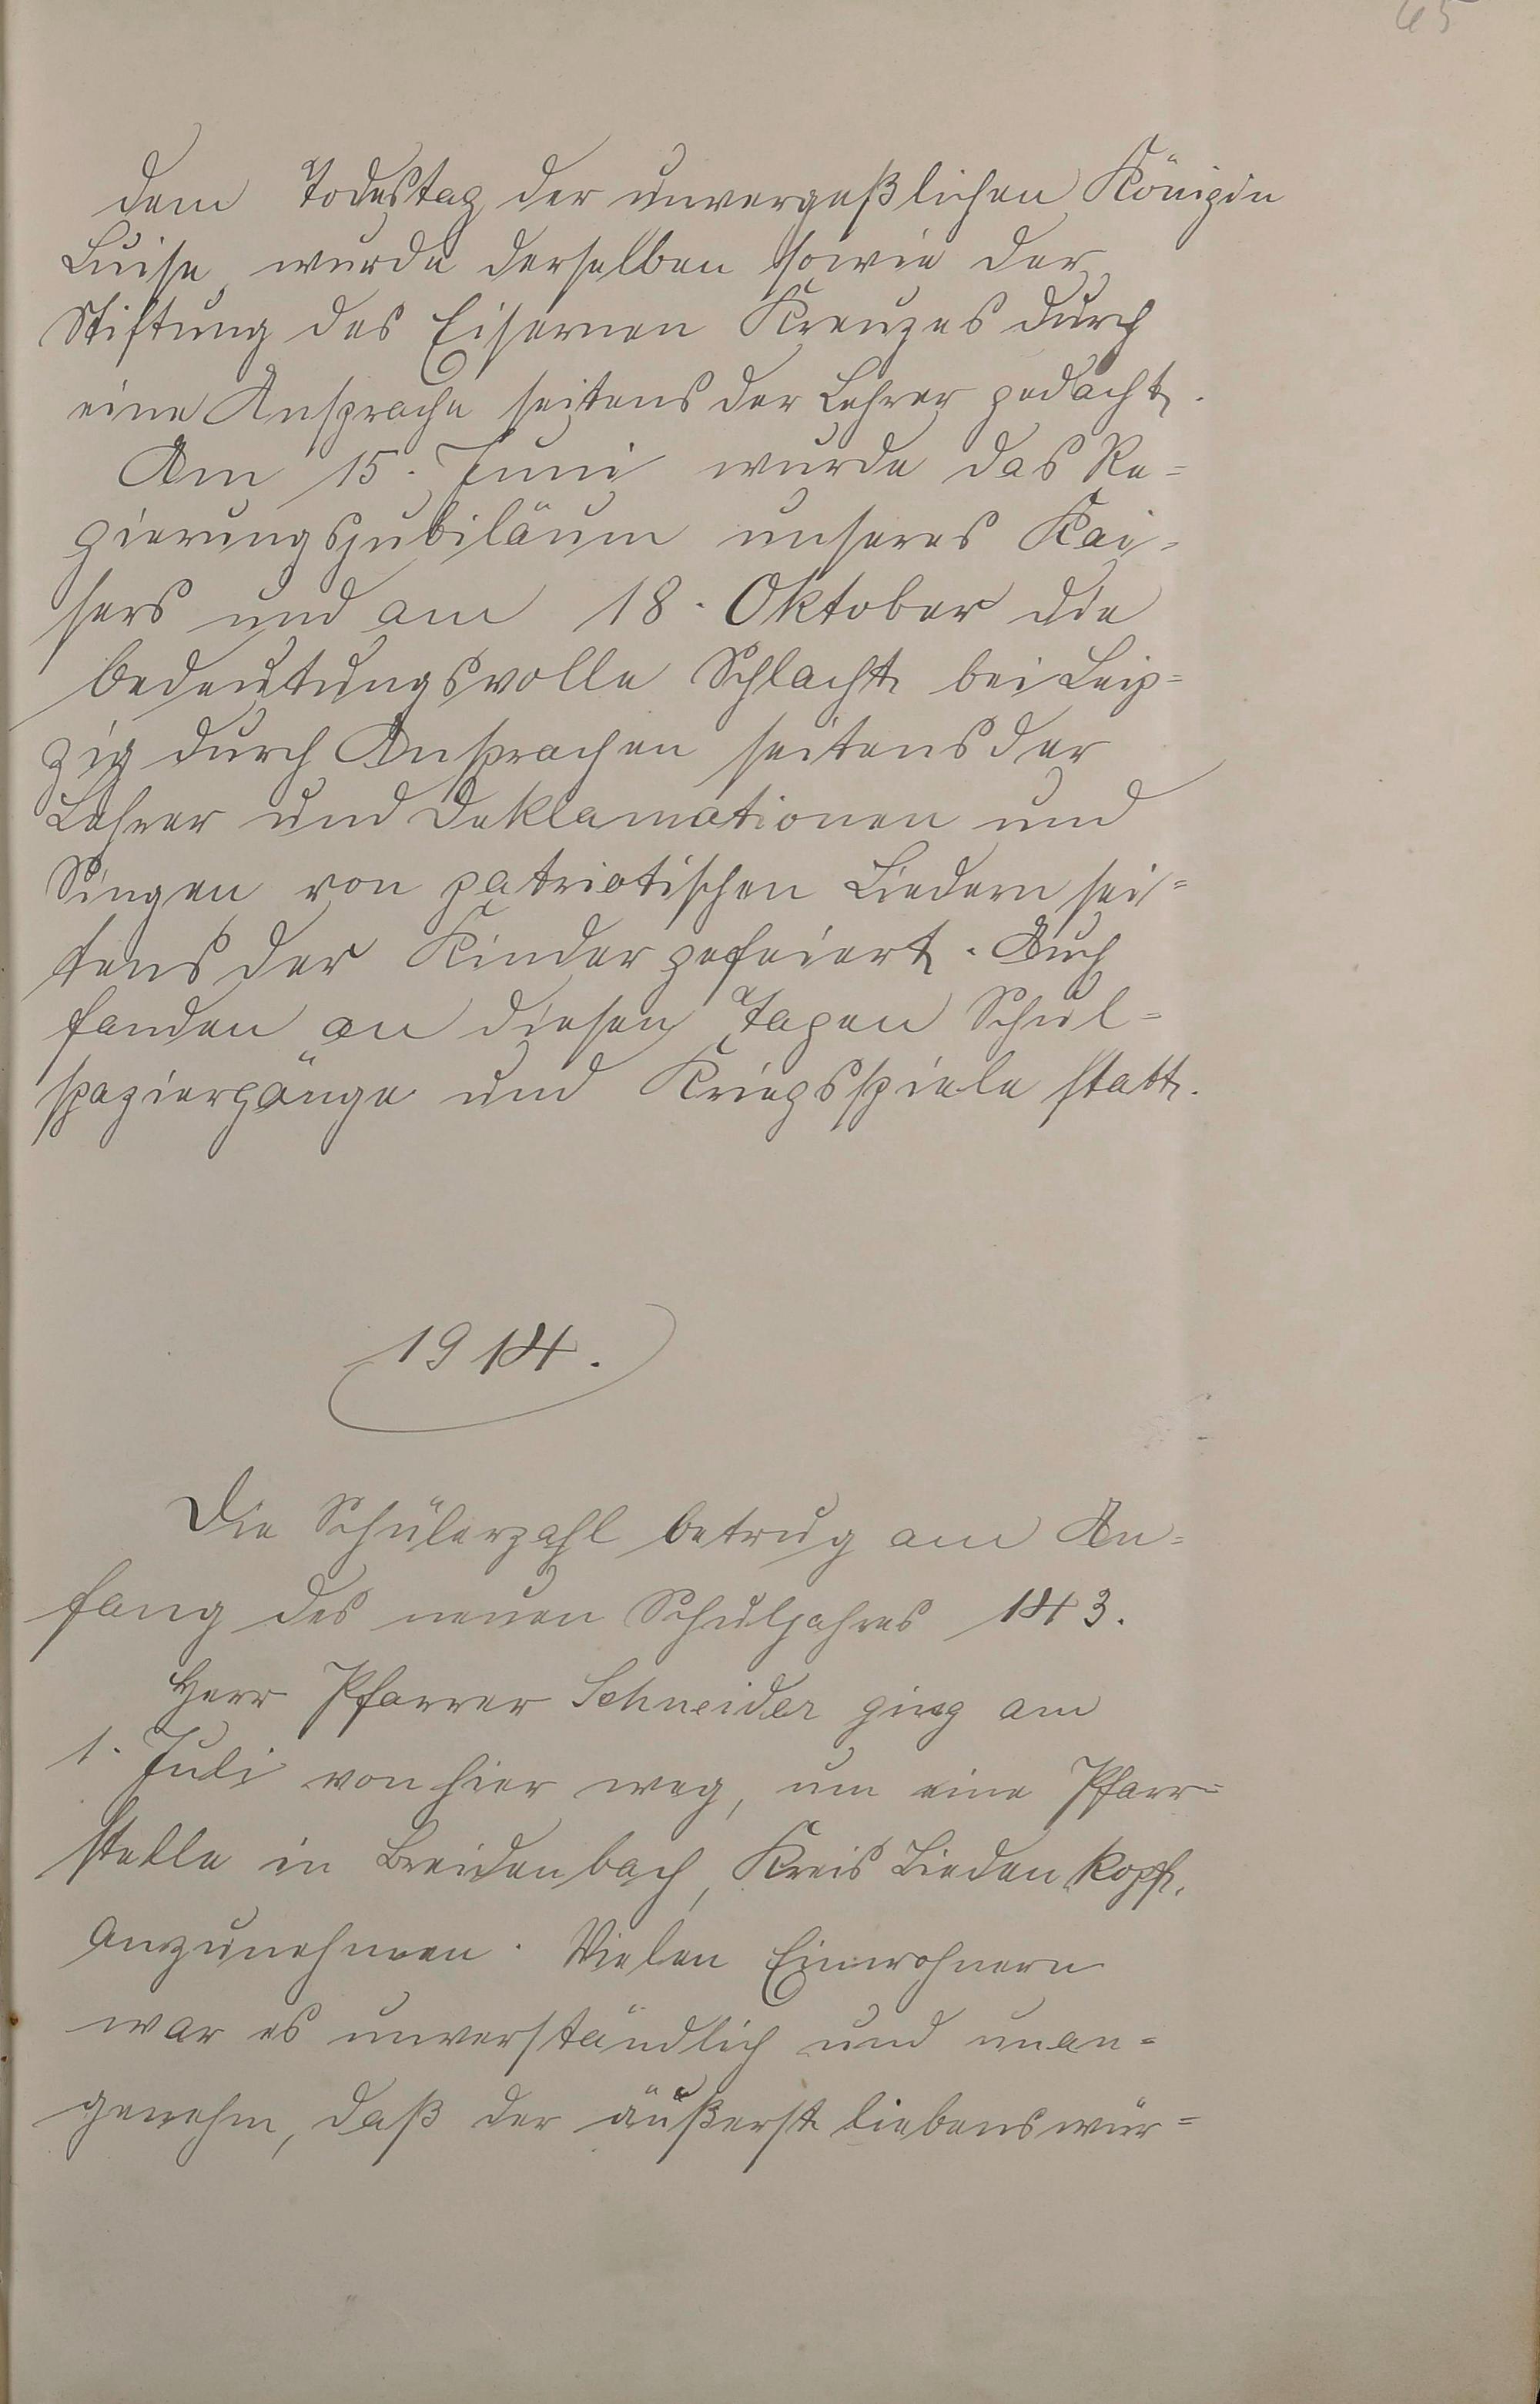 65
dem Todestag der unvergeßlichen Königin
Luise, wurde derselben sowie der
Stiftung des Eisernen Kreuzes durch
eine Ansprache seitens der Lehrer gedacht.
Am 15. Juni wurde das Re=
gierungsjubiläum unseres Kai=
sers und am 18. Oktober die
bedeutungsvolle Schlacht bei Leip=
zig durch Ansprachen seitens der
Lehrer und Deklamationen und
Singen von patriotischen Liedern sei=
tens der Kinder gefeiert. Auch
fanden an diesen Tagen Schul=
spaziergänge und Kriegsspiele statt.
1914.
Die Schülerzahl betrug am An=
fang des neuen Schuljahres 143.
Herr Pfarrer Schneider ging am
1. Juli von hier weg, um eine Pfarr=
stelle in Breidenbach, Kreis Biedenkopf,
anzunehmen. Vielen Einwohnern
war es unverständlich und unan=
genehm, daß der äußerst liebenswür=